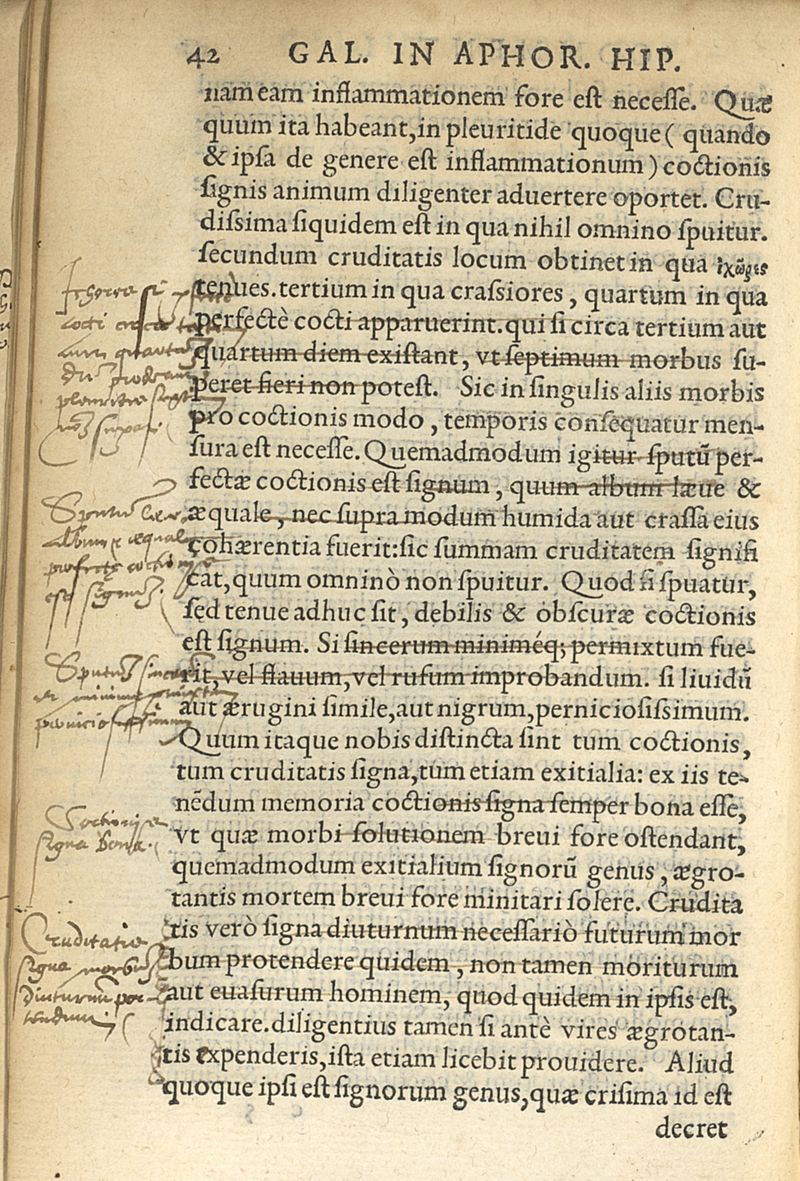 42 GAL. IN APHOR. HIP.
nam eam inflammationem fore est necesse. Quæ
quum ita habeant, in pleuritide quoque ( quando
& ipsa de genere est inflammationum ) coctionis
signis animum diligenter aduertere oportet. Cru-
dissima siquidem est in qua nihil omnino spuitur.
secundum cruditatis locum obtinet in qua ἰχῶρες
tenues. tertium in qua crassiores, quartum in qua
perfectè cocti apparuerint. qui si circa tertium aut
quartum diem existant, vt septimum morbus su-
peret fieri non potest. Sic in singulis aliis morbis
pro coctionis modo, temporis consequatur men-
sura est necesse. Quemadmodum igitur sputũ per-
fectæ coctionis est signum, quum album læue &
æquale, nec supra modum humida aut crassa eius
cohærentia fuerit: sic summam cruditatem signifi
cat, quum omninò non spuitur. Quod si spuatur,
sed tenue adhuc sit, debilis & obscuræ coctionis
est signum. Si sincerum miniméq; permixtum fue-
rit, vel flauum, vel rufum improbandum. si liuidũ
aut ærugini simile, aut nigrum, perniciosissimum.
Quum itaque nobis distincta sint tum coctionis,
tum cruditatis signa, tum etiam exitialia: ex iis te-
nẽdum memoria coctionis signa semper bona esse,
vt quæ morbi solutionem breui fore ostendant,
quemadmodum exitialium signorũ genus, ægro-
tantis mortem breui fore minitari solere. Crudita
tis verò signa diuturnum necessariò futurum mor
bum protendere quidem, non tamen moriturum
aut euasurum hominem, quod quidem in ipsis est,
indicare. diligentius tamen si antè vires ægrotan-
tis expenderis, ista etiam licebit prouidere. Aliud
quoque ipsi est signorum genus, quæ crisima id est
decret
Sputum
album æquale
perfectæ coctionis
est signum.
Sputum
Coctionis
signa bona.
Cruditatis
signa morbum
diuturnum